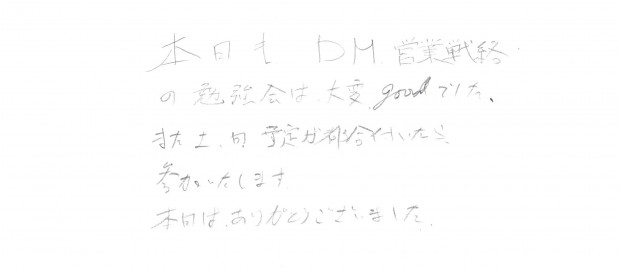 本日も DM 営業戦略
の勉強会は、大変goodでした、
また土、日 予定が都合付いたら、
参加いたします。
本日は、ありがとうございました。